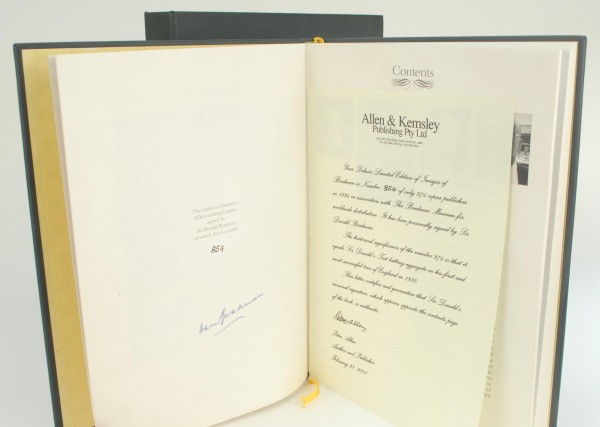 This edition is limited to
974 numbered copies
signed by
Sir Donald Bradman
of which this is number
854
Contents
Allen & Kemsley
Publishing Pty Ltd
Your Deluxe Limited Edition of Images of
Bradman is Number 854 of only 974 copies published
in 1994 in association with The Bradman Museum for
worldwide distribution. It has been personally signed by Sir
Donald Bradman.
The historical significance of the number 974 is that it
equals Sir Donald's Test batting aggregate in his first and
most successful tour of England in 1930.
This letter certifies and guarantees that Sir Donald's
personal signature, which appears opposite the contents page
of the book, is authentic.
Peter Allen
Author and Publisher